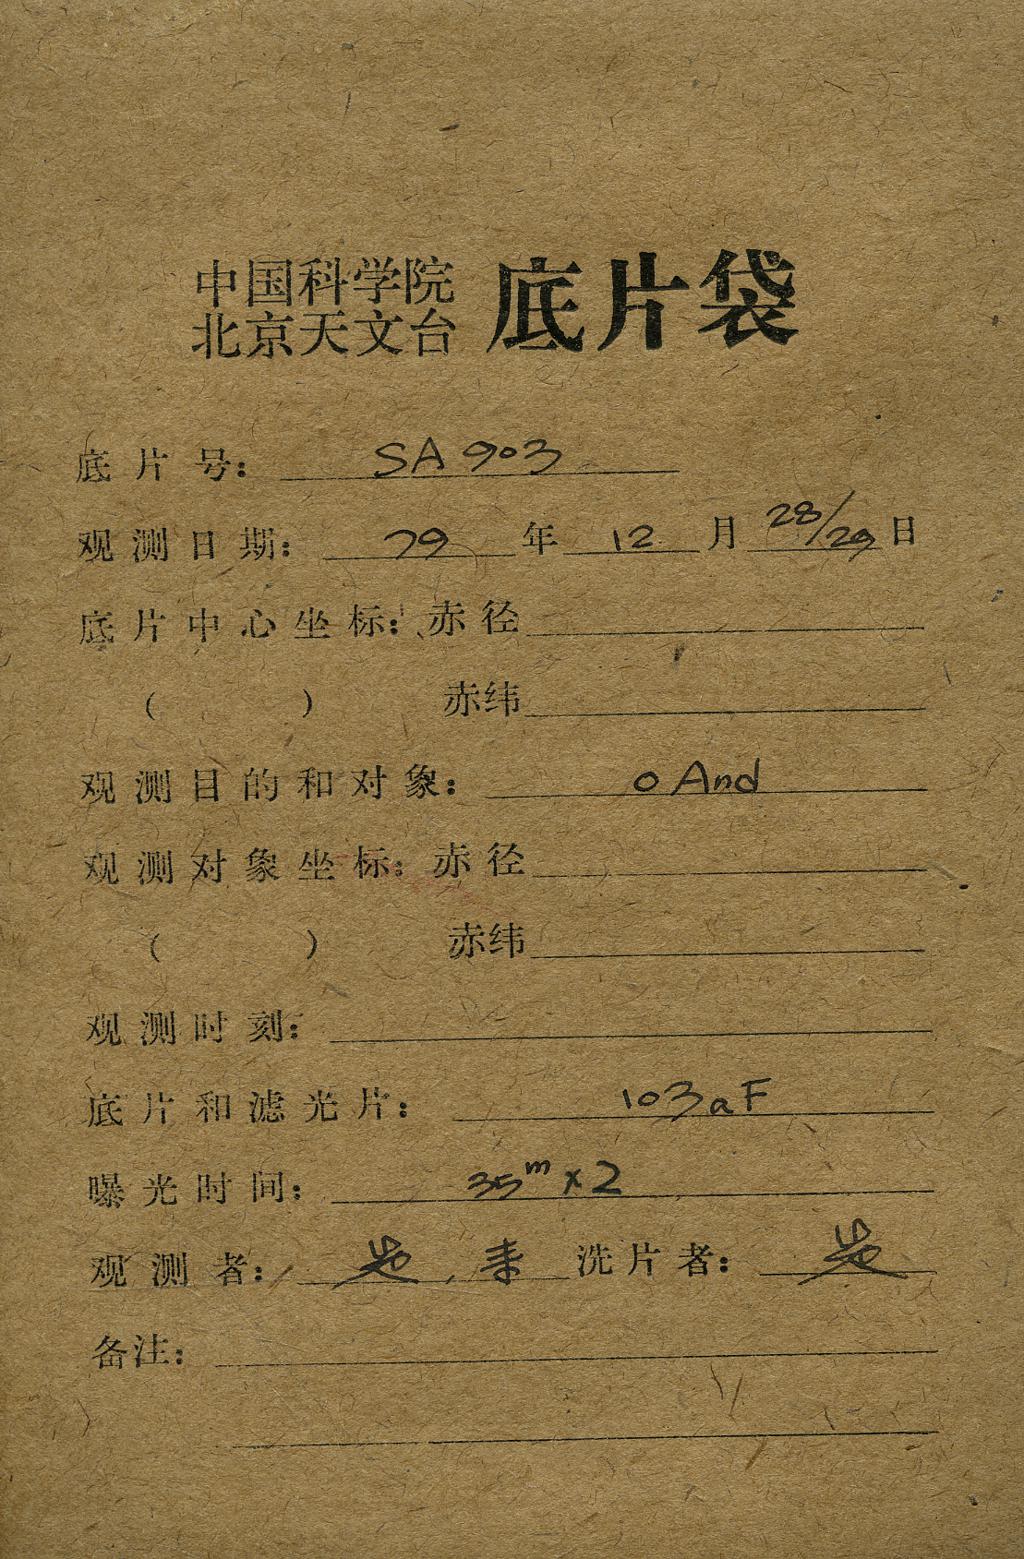 中国科学院
北京天文台 底片袋
底片号: SA903
观测日期: 79年12月28/29日
底片中心坐标: 赤径
( ) 赤纬
观测目的和对象: o And
观测对象坐标: 赤径
( ) 赤纬
观测时刻:
底片和滤光片: 103aF
曝光时间: 35m×2
观测者: 洗片者:
备注: